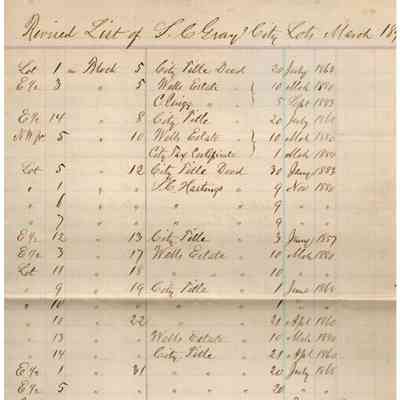 Revised List of S. C. Gray's City Lots March 18
Lot 1 in Block 5 City Title Deed 20 July 1860
E 1/2 3 " 5 Wells Estate 10 Mch 1880
C. " 5 Sept 1883
E 1/2 14 " 8 City Title 20 July 1860
N.W. pt 5 " 10 Wells Estate 10 Mch 1880
City Tax Certificate 1 Mch 1880
Lot 5 " 12 City Title Deed 30 Jany 1883
" 1 " " S. C. Hastings 9 Nov 1880
" 6 " " " 9 " "
" 7 " " " 9 " "
E 1/2 12 " 13 City Title 3 Jany 1857
E 1/2 3 " 17 Wells Estate 10 Mch 1880
Lot 11 " 18 " 10 " "
" 9 " 19 City Title 1 June 1860
" 10 " " " 1 " "
" 10 " 22 " 21 Apl 1860
" 13 " " Wells Estate 10 Mch 1880
" 14 " " City Title 21 Apl 1860
E 1/2 1 " 31 " 20 July 1860
E 1/2 5 " " " 20 " "